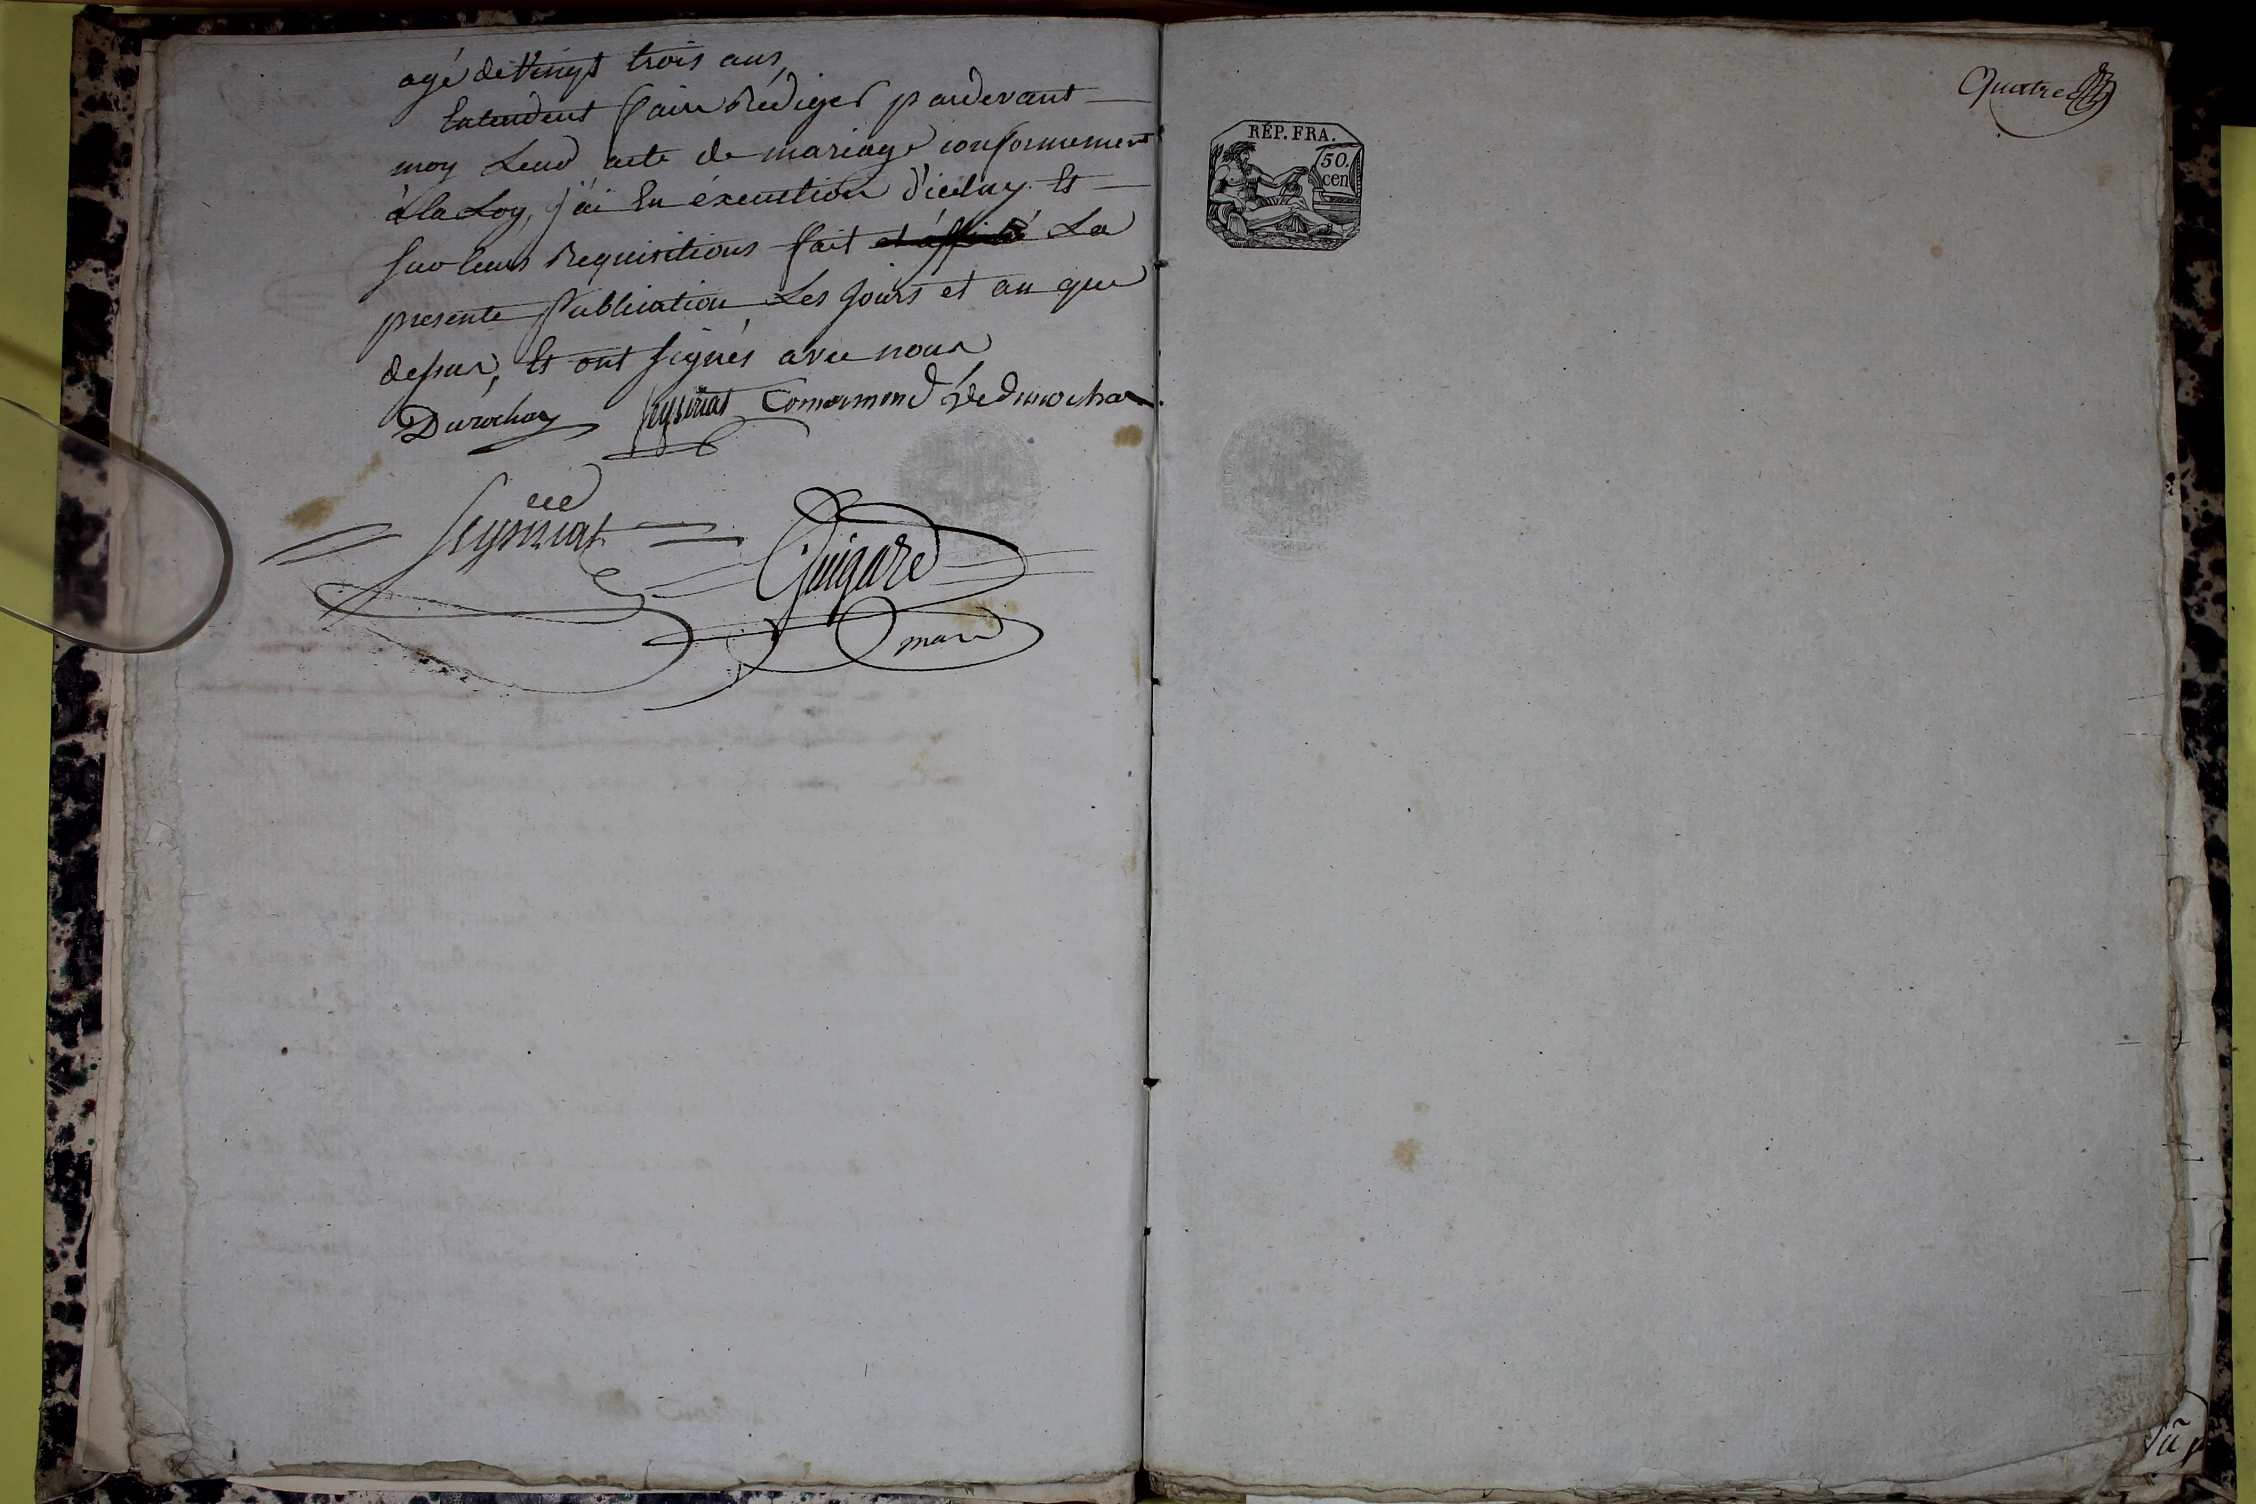 agé de Vingt trois ans,
Entendent faire Rédiger pardevant
moy Leur acte de mariage conformement
à la Loy, j'ai En éxecution d'iceluy Et
sur leurs Requisitions fait et affiché La
presente Publication Les jours et an que
dessus, Et ont signés avec nous
Durochay Seysiriat Comarmond Ve durochas
Seysiriat Guigard
maire
Quatre
RÉP. FRA.
50.
cen